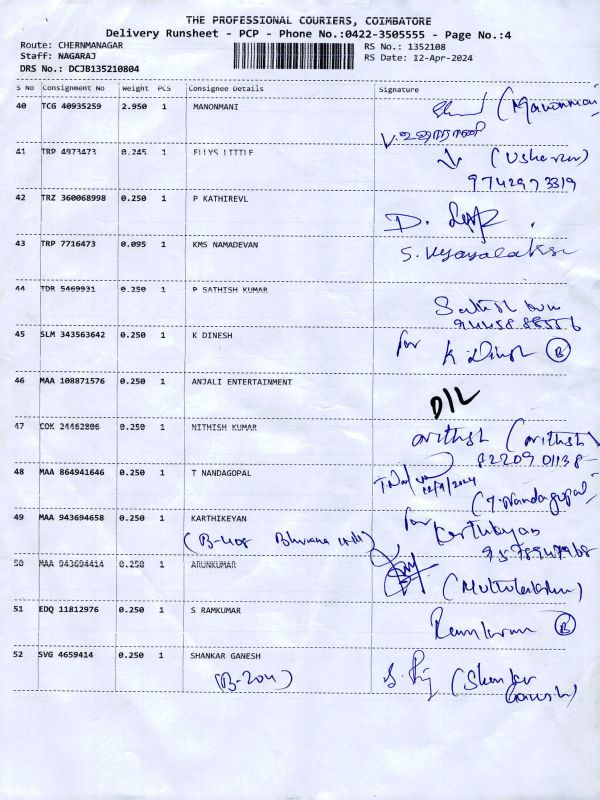 THE PROFESSIONAL COURIERS, COIMBATORE
Delivery Runsheet - PCP - Phone No.:0422-3505555 - Page No.:4
Route: CHERNMANAGAR
Staff: NAGARAJ
DRS No.: DCJB135210804
RS No.: 1352108
RS Date: 12-Apr-2024
S No Consignment No Weight PCS Consignee Details Signature
40 TCG 40935259 2.950 1 MANONMANI
(Manonmani
V. உஷாராணி
41 TRP 4973473 0.245 1 ELLYS LITTLE
(Usharani)
9742973319
42 TRZ 360068998 0.250 1 P KATHIREVL
D.
43 TRP 7716473 0.095 1 KMS NAMADEVAN
S. Vijayalaksh
44 TDR 5469931 0.250 1 P SATHISH KUMAR
Sathish
45 SLM 343563642 0.250 1 K DINESH
for K Dinesh B
46 MAA 108871576 0.250 1 ANJALI ENTERTAINMENT
D/L
47 COK 24462806 0.250 1 NITHISH KUMAR
nithish (nithish)
82209 01138
48 MAA 864941646 0.250 1 T NANDAGOPAL
(T. Nandagopal)
49 MAA 943694658 0.250 1 KARTHIKEYAN
for Karthikeyan
(B-408
9578947968
50 MAA 943694414 0.250 1 ARUNKUMAR
(Muthulakshmi)
51 EDQ 11812976 0.250 1 S RAMKUMAR
Ramkumar B
52 SVG 4659414 0.250 1 SHANKAR GANESH
(B-204)
(Shankar
Ganesh)